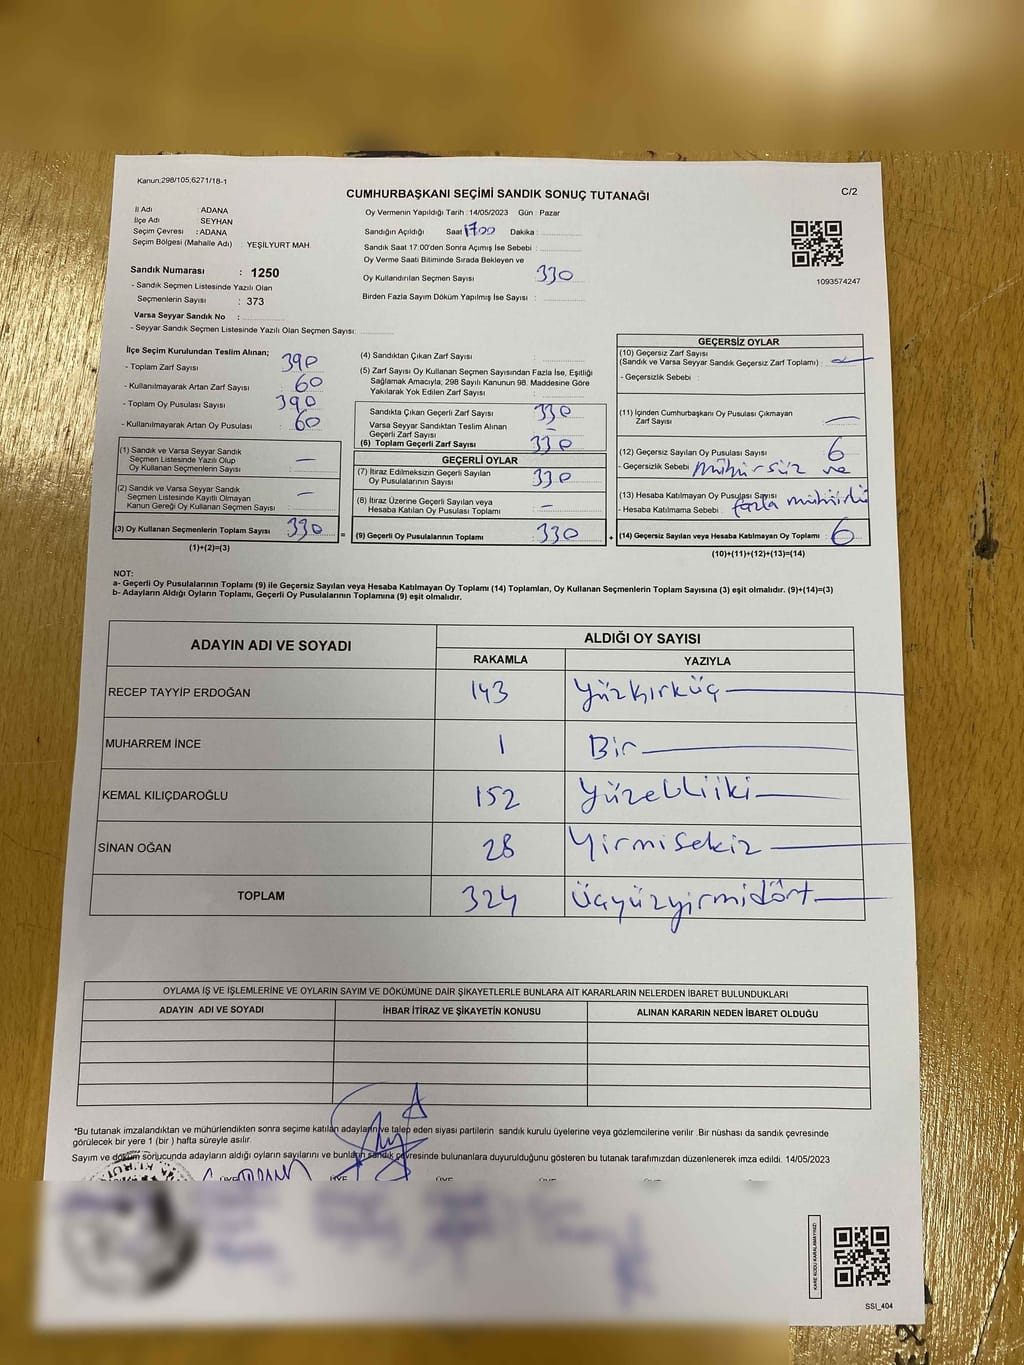 Kanun,298/105,6271/18-1
CUMHURBAŞKANI SEÇİMİ SANDIK SONUÇ TUTANAĞI
C/2
İl Adı : ADANA
İlçe Adı : SEYHAN
Seçim Çevresi : ADANA
Seçim Bölgesi (Mahalle Adı) : YEŞİLYURT MAH
Sandık Numarası : 1250
- Sandık Seçmen Listesinde Yazılı Olan
Seçmenlerin Sayısı : 373
Varsa Seyyar Sandık No :
- Seyyar Sandık Seçmen Listesinde Yazılı Olan Seçmen Sayısı:
Oy Vermenin Yapıldığı Tarih :14/05/2023 Gün : Pazar
Sandığın Açıldığı Saat 17.00 Dakika :
Sandık Saat 17:00'den Sonra Açımış İse Sebebi :
Oy Verme Saati Bitiminde Sırada Bekleyen ve
Oy Kullandırılan Seçmen Sayısı 330
Birden Fazla Sayım Döküm Yapılmış İse Sayısı :
1093574247
İlçe Seçim Kurulundan Teslim Alınan;
- Toplam Zarf Sayısı 390
- Kullanılmayarak Artan Zarf Sayısı 60
- Toplam Oy Pusulası Sayısı 390
- Kullanılmayarak Artan Oy Pusulası 60
(1) Sandık ve Varsa Seyyar Sandık
Seçmen Listesinde Yazılı Olup
Oy Kullanan Seçmenlerin Sayısı : —
(2) Sandık ve Varsa Seyyar Sandık
Seçmen Listesinde Kayıtlı Olmayan
Kanun Gereği Oy Kullanan Seçmen Sayısı : —
(3) Oy Kullanan Seçmenlerin Toplam Sayısı : 330 =
(1)+(2)=(3)
(4) Sandıktan Çıkan Zarf Sayısı :
(5) Zarf Sayısı Oy Kullanan Seçmen Sayısından Fazla İse, Eşitliği
Sağlamak Amacıyla; 298 Sayılı Kanunun 98. Maddesine Göre
Yakılarak Yok Edilen Zarf Sayısı :
Sandıkta Çıkan Geçerli Zarf Sayısı 330
Varsa Seyyar Sandıktan Teslim Alınan
Geçerli Zarf Sayısı : —
(6) Toplam Geçerli Zarf Sayısı 330
GEÇERLİ OYLAR
(7) İtiraz Edilmeksizin Geçerli Sayılan
Oy Pusulalarının Sayısı : 330
(8) İtiraz Üzerine Geçerli Sayılan veya
Hesaba Katılan Oy Pusulası Toplamı : —
(9) Geçerli Oy Pusulalarının Toplamı : 330 +
GEÇERSİZ OYLAR
(10) Geçersiz Zarf Sayısı
(Sandık ve Varsa Seyyar Sandık Geçersiz Zarf Toplamı) :
- Geçersizlik Sebebi :
(11) İçinden Cumhurbaşkanı Oy Pusulası Çıkmayan
Zarf Sayısı : —
(12) Geçersiz Sayılan Oy Pusulası Sayısı : 6
- Geçersizlik Sebebi : mühürsüz ve
(13) Hesaba Katılmayan Oy Pusulası Sayısı
- Hesaba Katılmama Sebebi : fazla mühürlü
(14) Geçersiz Sayılan veya Hesaba Katılmayan Oy Toplamı : 6
(10)+(11)+(12)+(13)=(14)
NOT:
a- Geçerli Oy Pusulalarının Toplamı (9) ile Geçersiz Sayılan veya Hesaba Katılmayan Oy Toplamı (14) Toplamları, Oy Kullanan Seçmenlerin Toplam Sayısına (3) eşit olmalıdır. (9)+(14)=(3)
b- Adayların Aldığı Oyların Toplamı, Geçerli Oy Pusulalarının Toplamına (9) eşit olmalıdır.
ADAYIN ADI VE SOYADI
ALDIĞI OY SAYISI
RAKAMLA YAZIYLA
RECEP TAYYİP ERDOĞAN 143 Yüzkırküç
MUHARREM İNCE 1 Bir
KEMAL KILIÇDAROĞLU 152 Yüzelliiki
SİNAN OĞAN 28 Yirmisekiz
TOPLAM 324 Üçyüzyirmidört
OYLAMA İŞ VE İŞLEMLERİNE VE OYLARIN SAYIM VE DÖKÜMÜNE DAİR ŞİKAYETLERLE BUNLARA AİT KARARLARIN NELERDEN İBARET BULUNDUKLARI
ADAYIN ADI VE SOYADI İHBAR İTİRAZ VE ŞİKAYETİN KONUSU ALINAN KARARIN NEDEN İBARET OLDUĞU
*Bu tutanak imzalandıktan ve mühürlendikten sonra seçime katılan adayların ve talep eden siyasi partilerin sandık kurulu üyelerine veya gözlemcilerine verilir .Bir nüshası da sandık çevresinde
görülecek bir yere 1 (bir ) hafta süreyle asılır.
Sayım ve döküm sonucunda adayların aldığı oyların sayılarını ve bunların sandık çevresinde bulunanlara duyurulduğunu gösteren bu tutanak tarafımızdan düzenlenerek imza edildi. 14/05/2023
KARE KODU KARALAMAYINIZ!
SSI_404